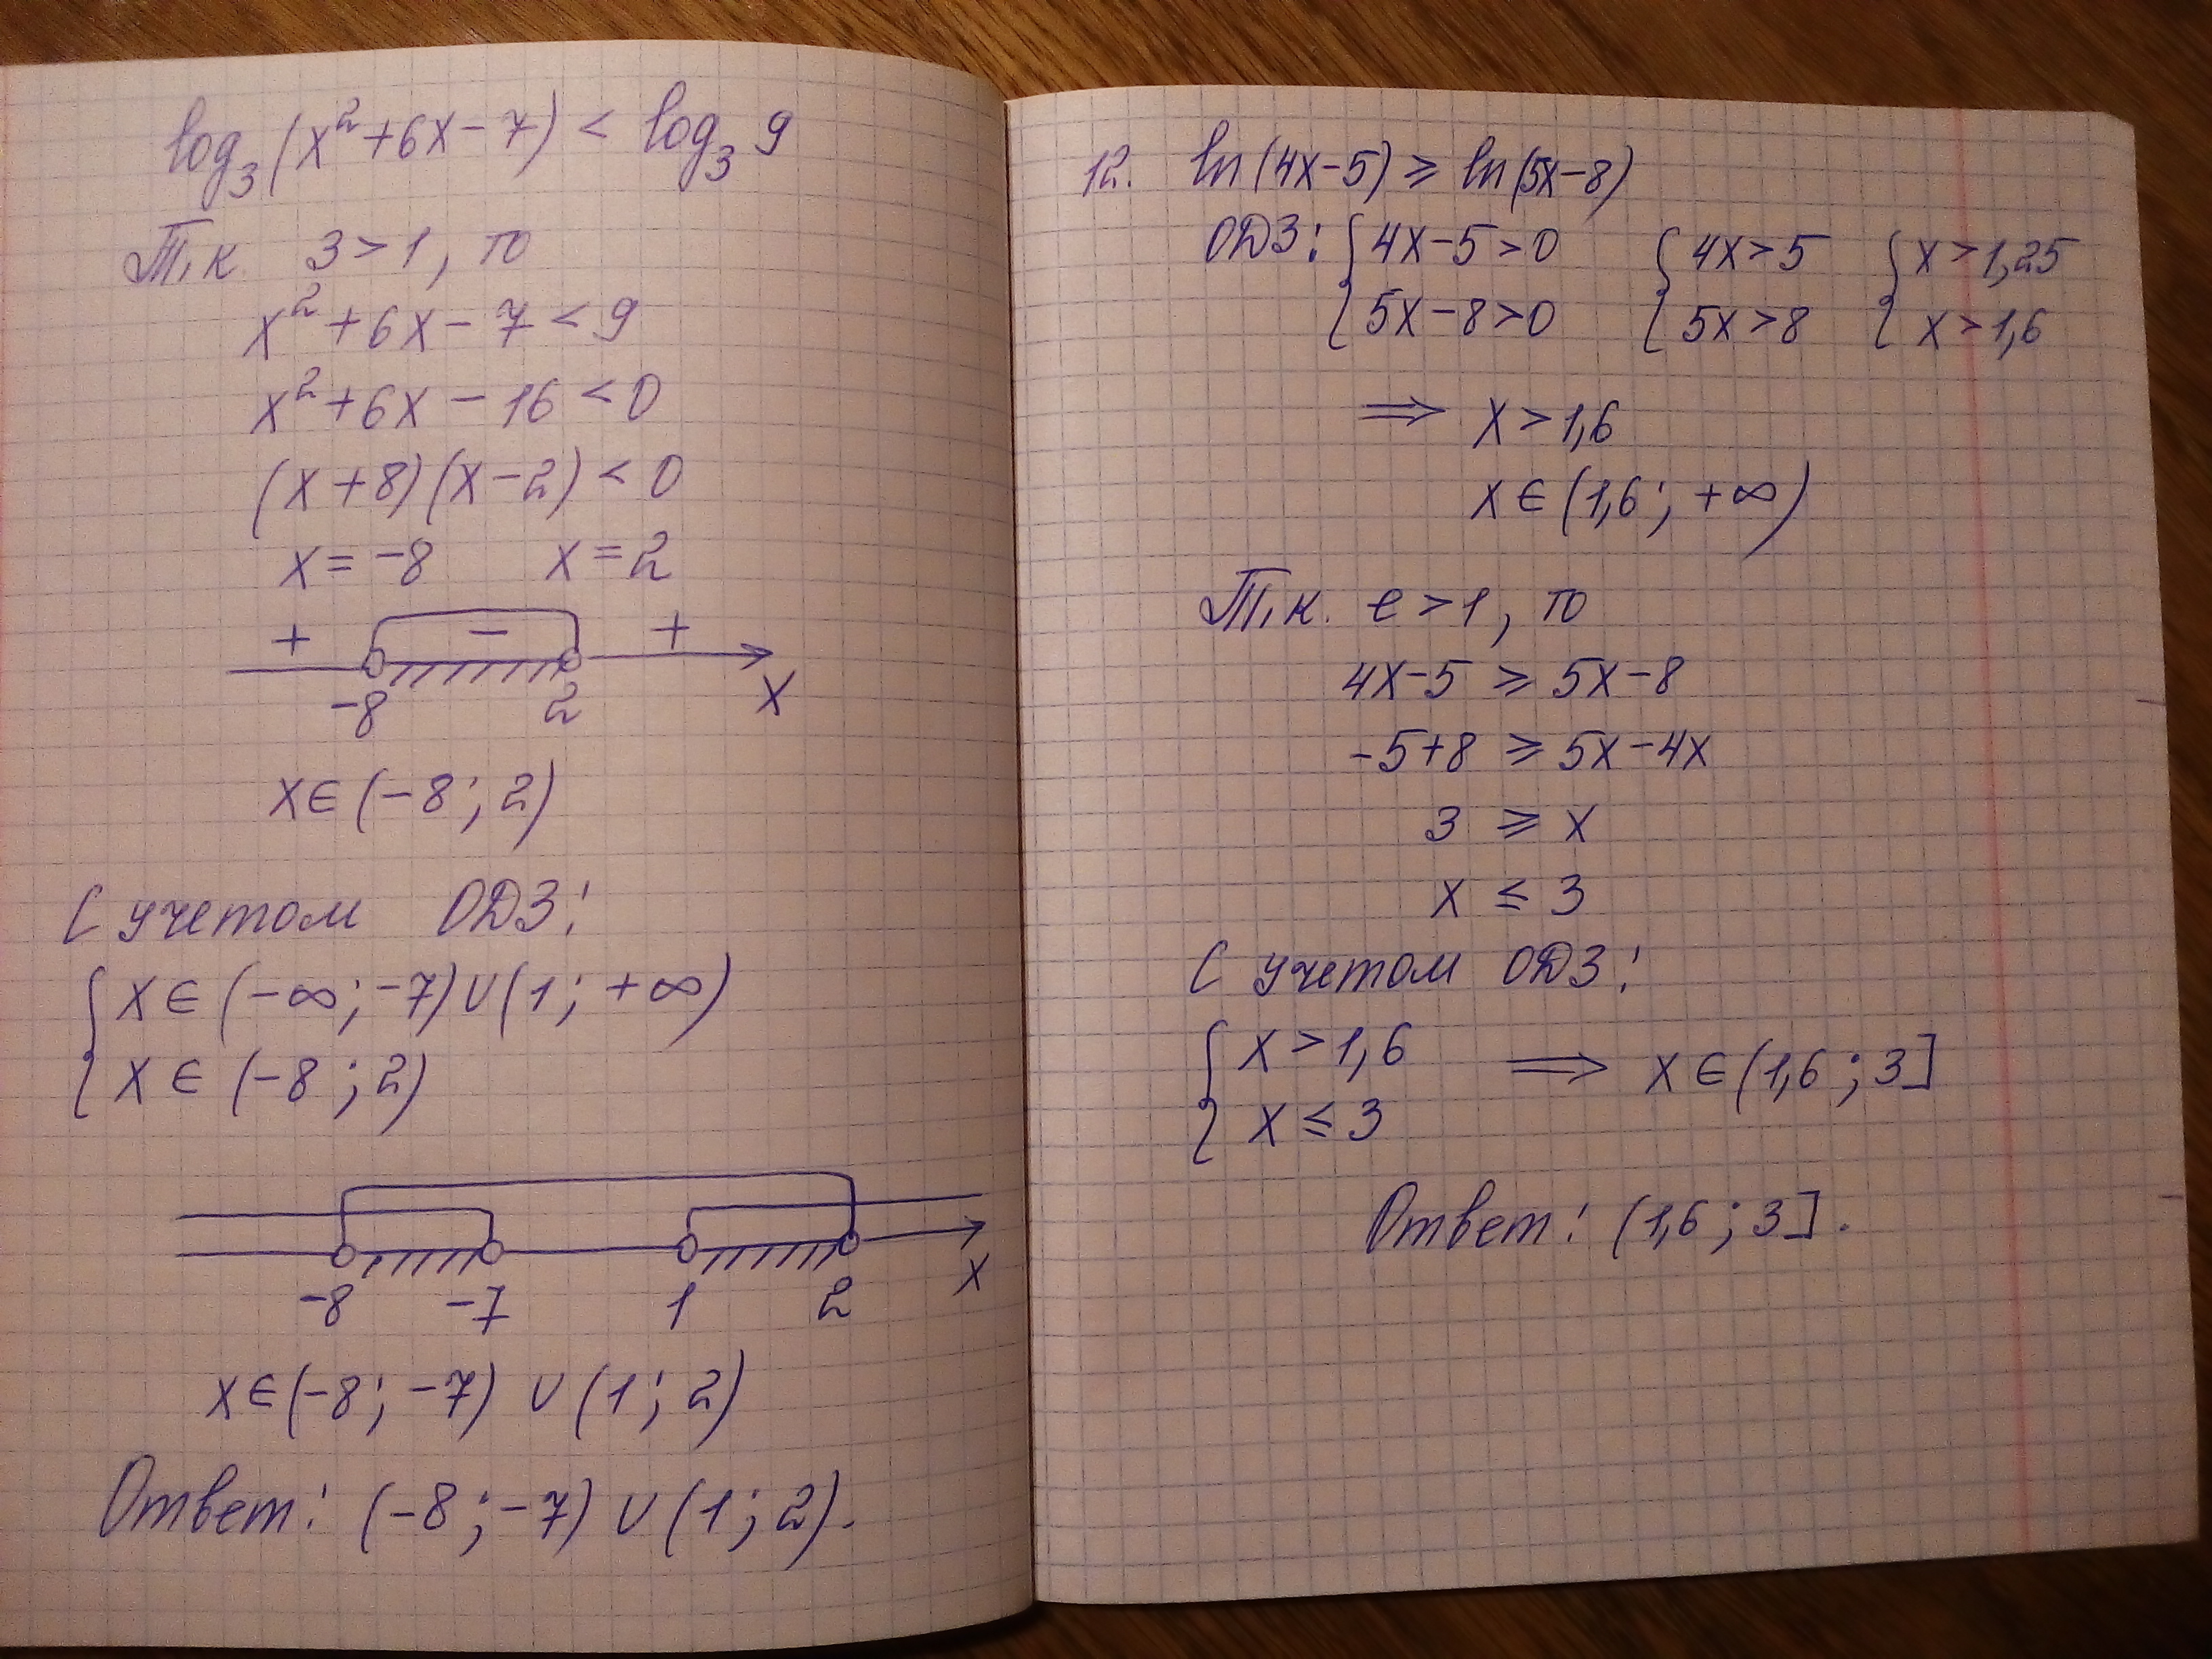 log₃(x²+6x-7) < log₃ 9
Т.к. 3>1, то
x²+6x-7<9
x²+6x-16<0
(x+8)(x-2)<0
x=-8 x=2
+ - +
-8 2 x
x∈(-8; 2)
С учетом ОДЗ:
{ x∈(-∞; -7)∪(1; +∞)
{ x∈(-8; 2)
-8 -7 1 2 x
x∈(-8; -7) ∪ (1; 2)
Ответ: (-8; -7) ∪ (1; 2).
12. ln(4x-5) ⩾ ln(5x-8)
ОДЗ: { 4x-5>0 { 4x>5 { x>1,25
{ 5x-8>0 { 5x>8 { x>1,6
⟹ x>1,6
x∈(1,6; +∞)
Т.к. e>1, то
4x-5 ⩾ 5x-8
-5+8 ⩾ 5x-4x
3 ⩾ x
x ≤ 3
С учетом ОДЗ:
{ x>1,6 ⟹ x∈(1,6; 3]
{ x≤3
Ответ: (1,6; 3].